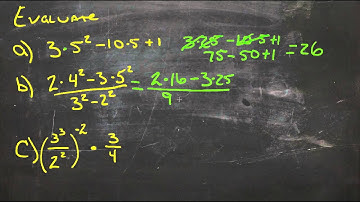 Evaluate
a) 3·5² -10·5+1 3·25 -10·5+1
75 - 50+1 =26
b) 2·4² -3·5² / 3² -2² = 2·16 -3·25 / 9
c) (3³/2²)⁻² · 3/4